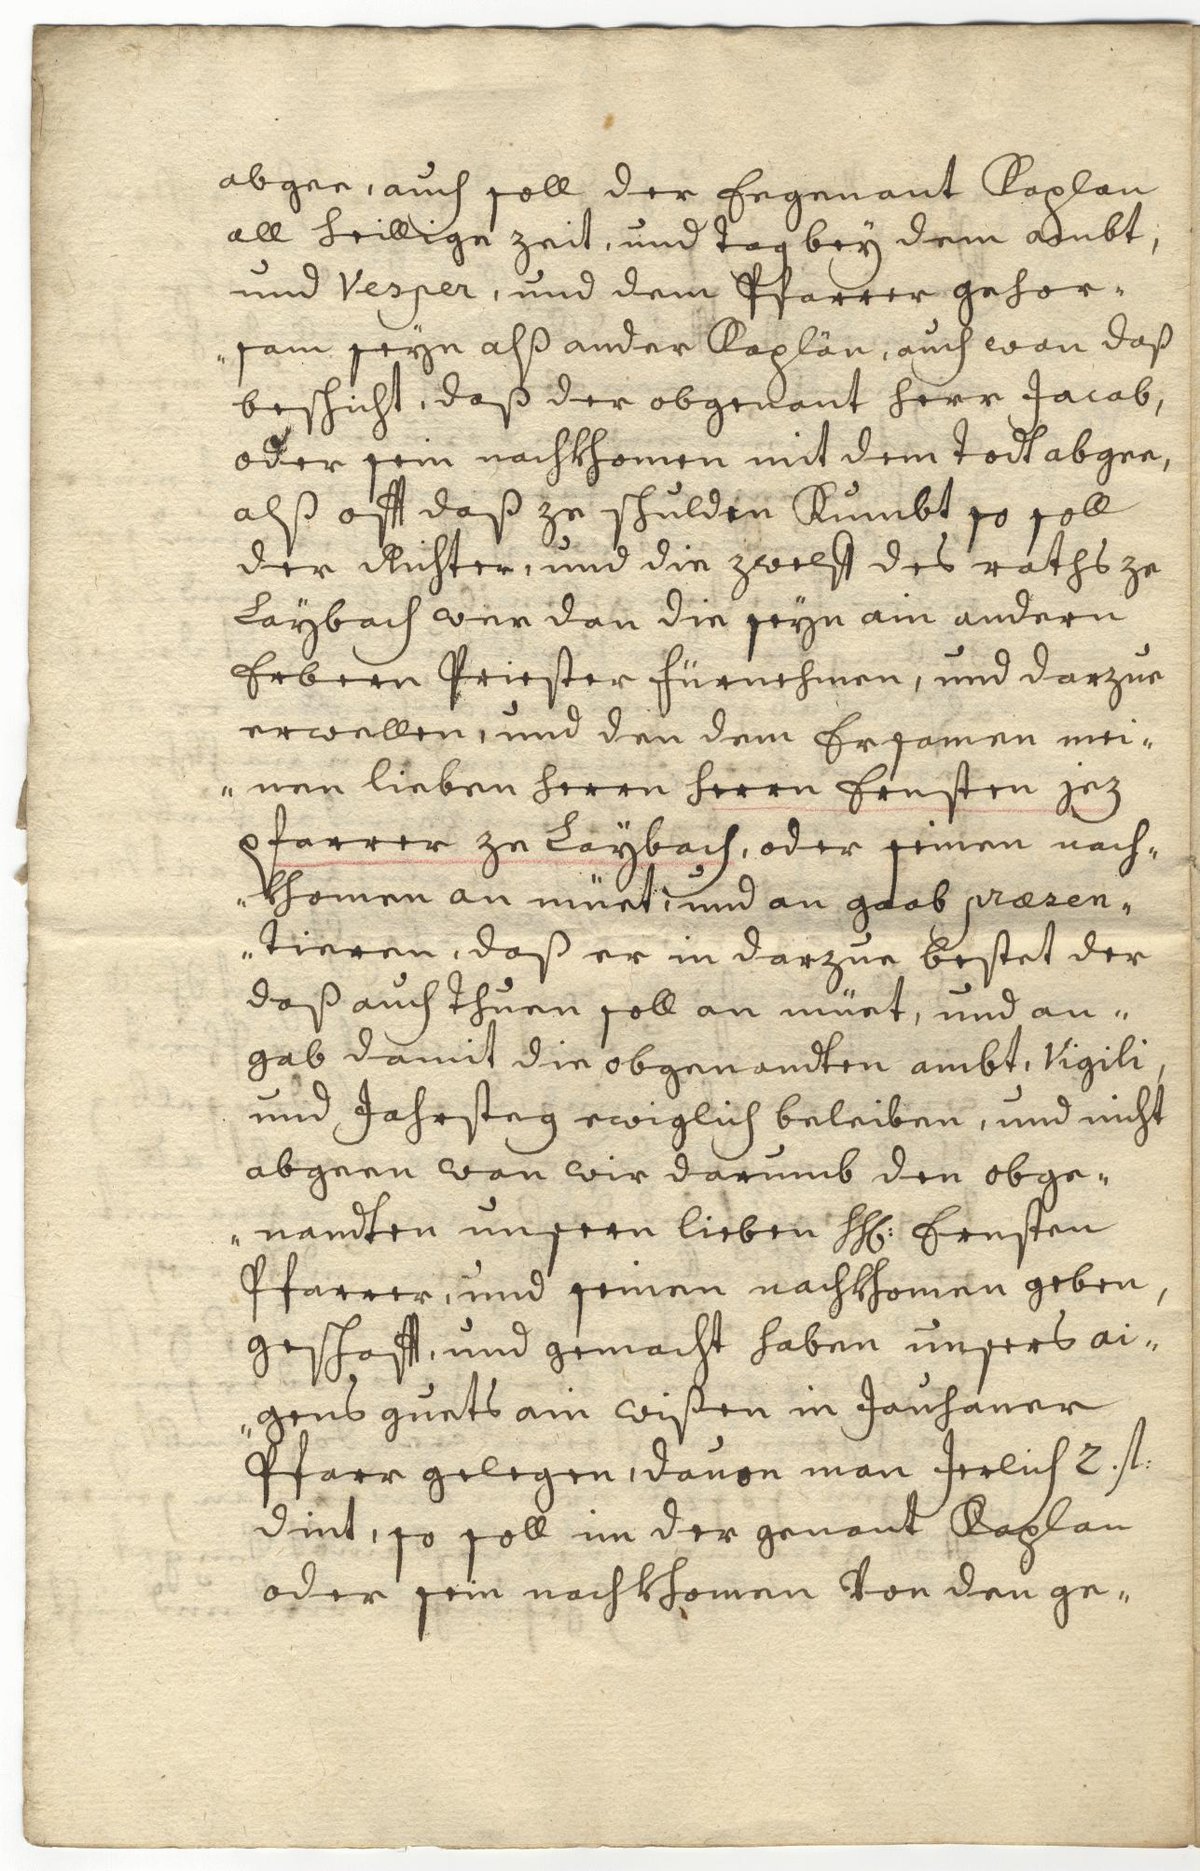 abgee, auch soll der Eegenant Kaplan
all heillige zeit, und tag bey dem ambt,
und Vesper, und dem Pfarrer gehor„
„sam seyn alß ander Kaplän, auch wan daß
beschicht, daß der obgenant herr Jacob,
oder sein nachkhomen mit dem Todt abgee,
alß offt daß ze schulden Kumbt so soll
der Richter, und die zwelff des raths ze
Laybach wer dan die seyn ain andern
Erbern Priester fürnehmen, und darzue
erwellen, und den dem Ersamen mei„
„nen lieben herrn herrn Ernsten jez
pfarrer ze Laybach, oder seinen nach„
„khomen an müet, und an gaab præsen„
„tieren, daß er in darzue bestet der
daß auch thuen soll an müet, und an„
gab damit die obgenandten ambt, Vigili,
und Jahrsteg ewiglich beleiben, und nicht
abgeen wan wir darumb den obge„
„nandten unsern lieben hh: Ernsten
Pfarrer, und seinen nachkhomen geben,
geschafft, und gemacht haben unsers ai„
„gens guets ain wißen in Jauchaner
Pfarr gelegen, dauon man Jerlich 2. fl:
dint, so soll im der genant Kaplan
oder sein nachkhomen Von den ge„